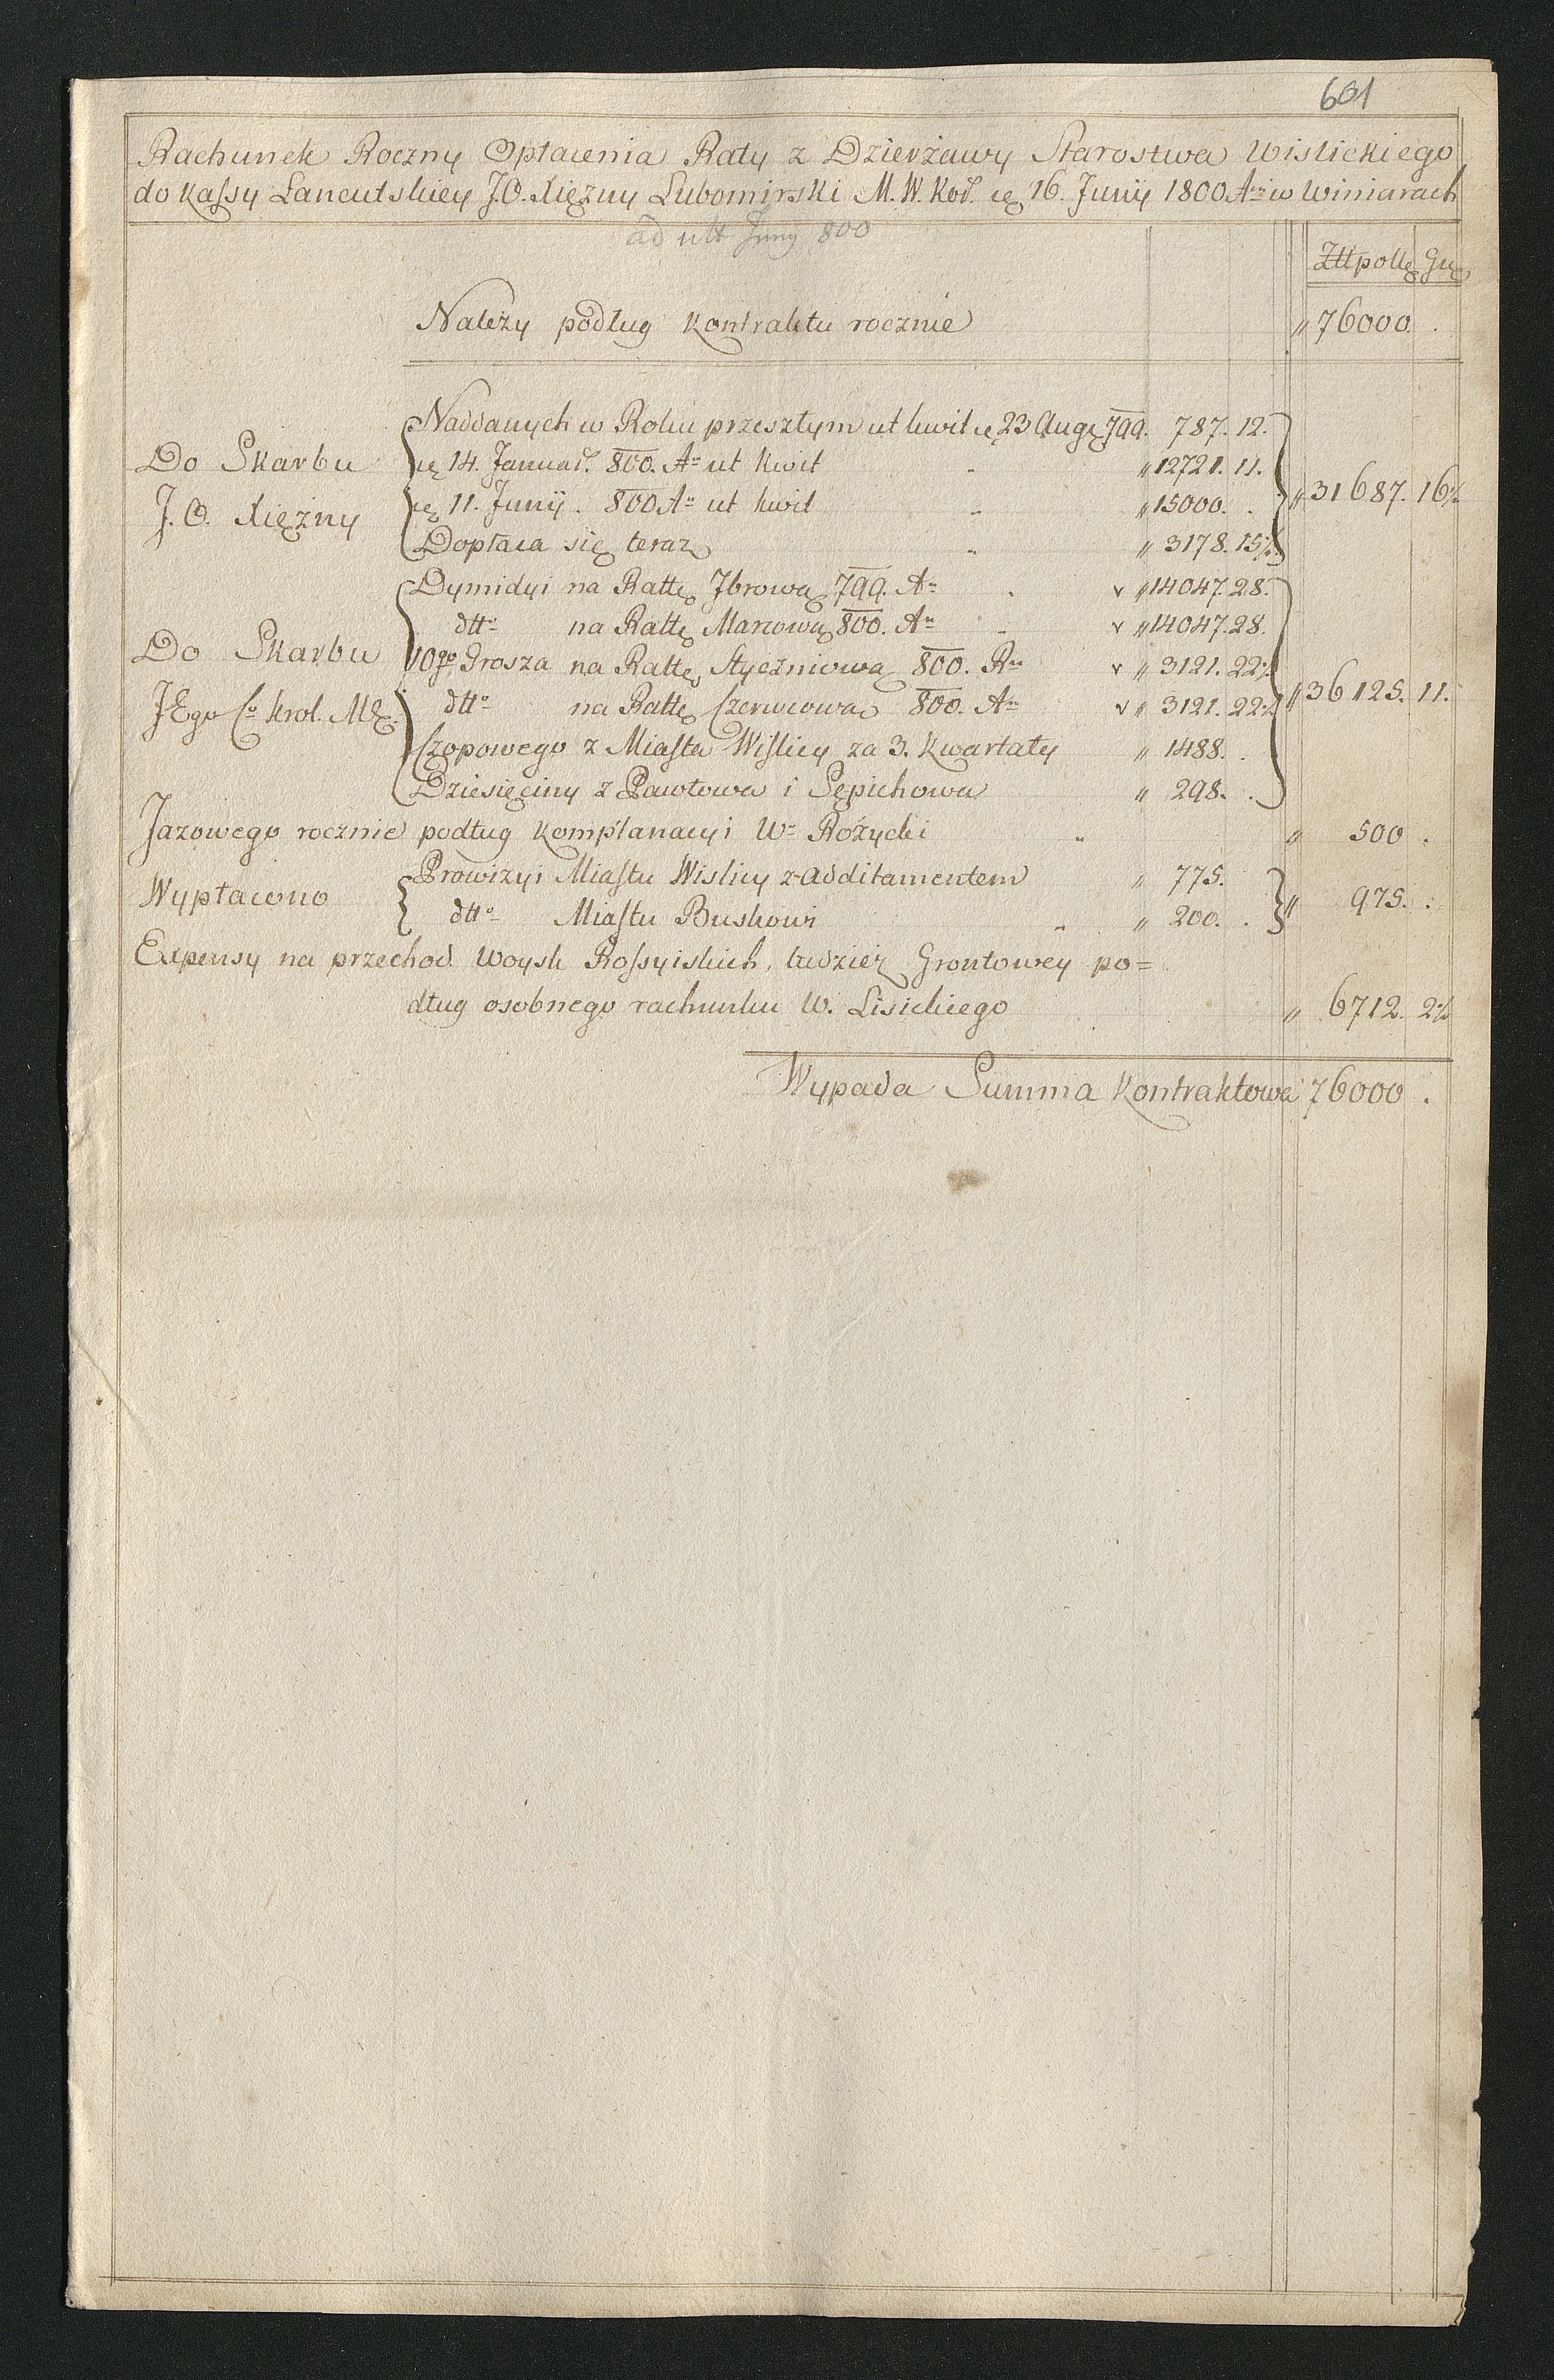 601
Rachunek Roczny Opłacenia Raty z Dzierżawy Starostwa Wislickiego
do Kassy Lancutskiey J.O. Xiężny Lubomirski M. W. Kor. 16. Junij 1800 Aº w Winiarach
ad ult Juny 800
Złł poll Gr
Należy podług Kontraktu rocznie „ 76000 .
Naddanych w Roku przeszłym ut kwit 23 Aug 799. 787. 12.
Do Skarbu 14. Januar. 800. Aº ut Kwit „ 12721. 11.
J. O. Xiężny 11. Junij. 800 Aº ut kwit „ 15000. . „ 31687. 16½
Dopłaca się teraz „ 3178. 15½
Dymidyi na Rattę 7browa 799. Aº „ 14047. 28.
dttº na Rattę Marcową 800. Aº „ 14047. 28.
Do Skarbu 10go Grosza na Rattę Styczniową 800. Rº „ 3121. 22½
JEgo Cº Krol. Mć. dttº na Rattę Czerwcową 800. Aº „ 3121. 22½ „ 36125. 11.
Czopowego z Miasta Wislicy za 3. Kwartały „ 1488. .
Dziesięciny z Pawłowa i Sępichowa „ 298. .
Jazowego rocznie podług Komplanacyi Wº Różycki „ 500 .
Prowizyi Miastu Wislicy z additamentem „ 775.
Wypłacono „ 975. .
dttº Miastu Buskowi „ 200. .
Expensy na przechod Woysk Rossyiskich, tudzież Grontowey po=
dług osobnego rachunku W. Lisickiego „ 6712. 2½
Wypada Summa Kontraktowa 76000 .